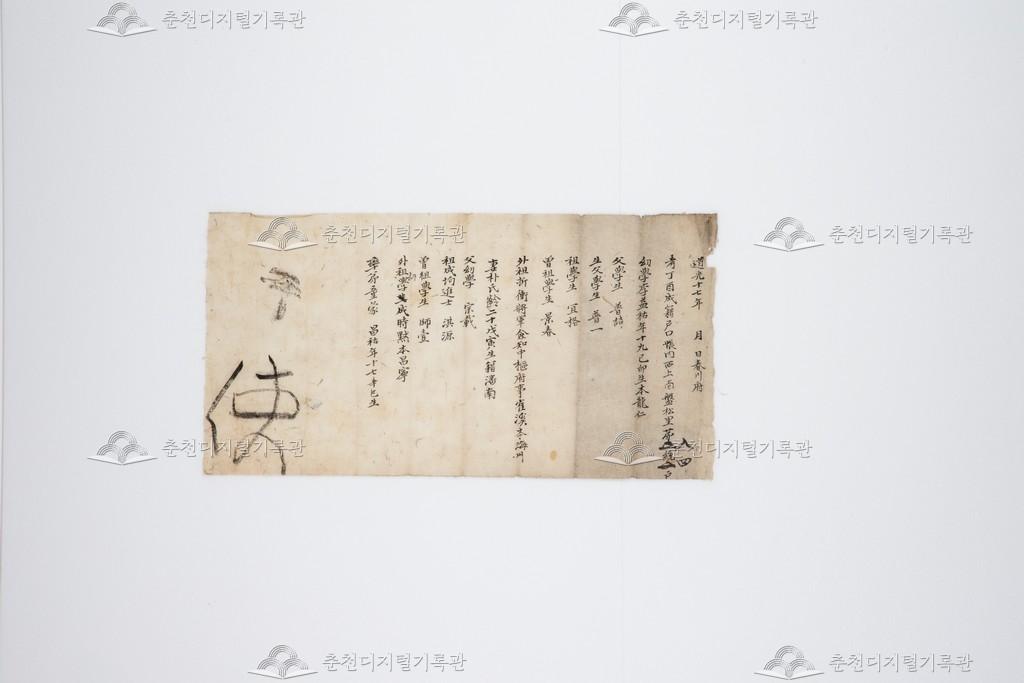 道光十七年 月 日春川府
考丁酉成籍戶口帳內西上南盤松里第 統 戶
八 四
幼學李益祜年十九己卯生本龍仁
父學生 普喆
生父學生 普一
祖學生 宜格
曾祖學生 景春
外祖折衝將軍僉知中樞府事崔溪本海州
妻朴氏齡二十戊寅生籍潘南
父幼學 宗載
祖成均進士 淇源
曾祖學生 師壹
外祖學生成時默本昌寧
率弟童蒙 昌祜年十七辛巳生
使
춘천디지털기록관
춘천디지털기록관
춘천디지털기록관
춘천디지털기록관
춘천디지털기록관
춘천디지털기록관
춘천디지털기록관
춘천디지털기록관